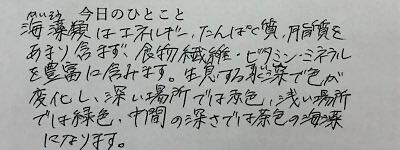 今日のひとこと
海藻類はエネルギー、たんぱく質、脂質を
あまり含まず、食物繊維・ビタミン・ミネラル
を豊富に含みます。生息する水深で色が
変化し、深い場所では赤色、浅い場所
では緑色、中間の深さでは茶色の海藻
になります。